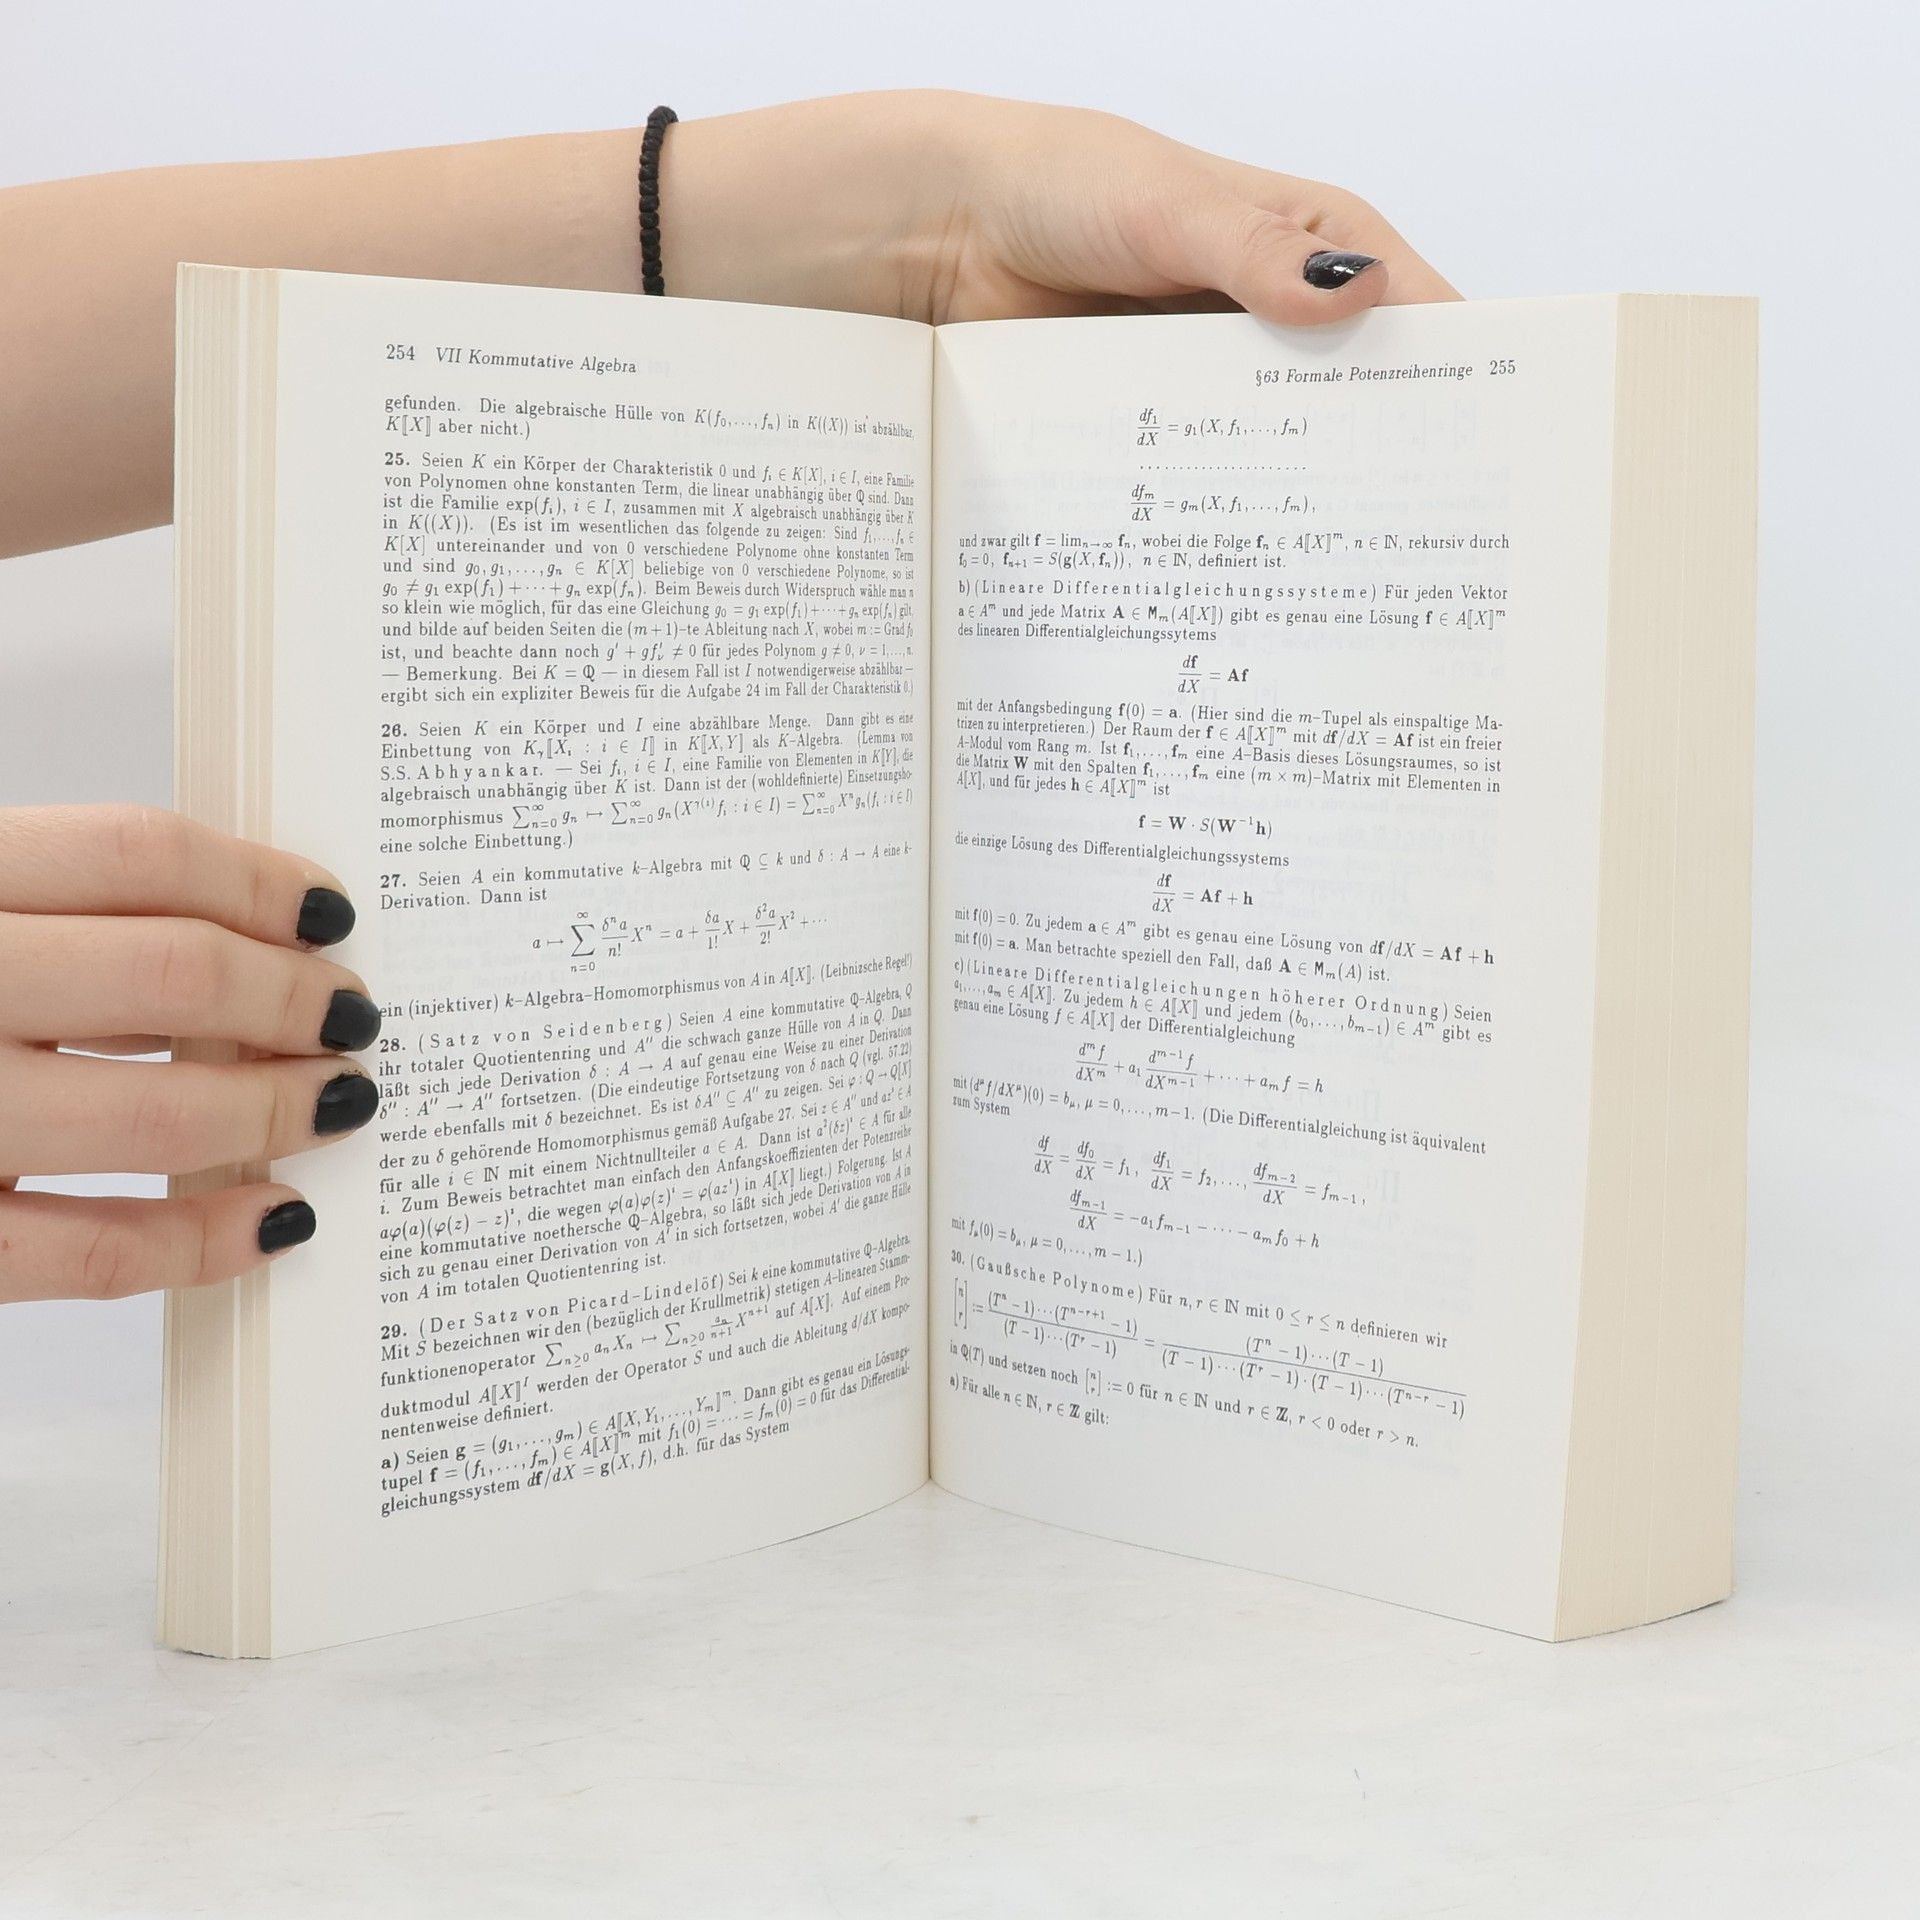 254 VII Kommutative Algebra
gefunden. Die algebraische Hülle von K(f₀,...,fₙ) in K((X)) ist abzählbar,
K⟦X⟧ aber nicht.)
25. Seien K ein Körper der Charakteristik 0 und fᵢ ∈ K[X], i ∈ I, eine Familie
von Polynomen ohne konstanten Term, die linear unabhängig über ℚ sind. Dann
ist die Familie exp(fᵢ), i ∈ I, zusammen mit X algebraisch unabhängig über K
in K((X)). (Es ist im wesentlichen das folgende zu zeigen: Sind f₁,...,fₙ ∈
K[X] untereinander und von 0 verschiedene Polynome ohne konstanten Term
und sind g₀,g₁,...,gₙ ∈ K[X] beliebige von 0 verschiedene Polynome, so ist
g₀ ≠ g₁ exp(f₁)+···+gₙ exp(fₙ). Beim Beweis durch Widerspruch wähle man n
so klein wie möglich, für das eine Gleichung g₀ = g₁ exp(f₁)+···+gₙ exp(fₙ) gilt,
und bilde auf beiden Seiten die (m+1)-te Ableitung nach X, wobei m := Grad f₀
ist, und beachte dann noch g′ + gf′ᵥ ≠ 0 für jedes Polynom g ≠ 0, ν = 1,...,n.
— Bemerkung. Bei K = ℚ — in diesem Fall ist I notwendigerweise abzählbar —
ergibt sich ein expliziter Beweis für die Aufgabe 24 im Fall der Charakteristik 0.)
26. Seien K ein Körper und I eine abzählbare Menge. Dann gibt es eine
Einbettung von Kᵧ⟦Xᵢ : i ∈ I⟧ in K⟦X,Y⟧ als K-Algebra. (Lemma von
S.S. Abhyankar. — Sei fᵢ, i ∈ I, eine Familie von Elementen in K[Y], die
algebraisch unabhängig über K ist. Dann ist der (wohldefinierte) Einsetzungsho-
momorphismus ∑ₙ₌₀^∞ gₙ ↦ ∑ₙ₌₀^∞ gₙ(X^γ(i) fᵢ : i ∈ I) = ∑ₙ₌₀^∞ Xⁿgₙ(fᵢ : i ∈ I)
eine solche Einbettung.)
27. Seien A ein kommutative k-Algebra mit ℚ ⊆ k und δ : A → A eine k-
Derivation. Dann ist
a ↦ ∑ₙ₌₀^∞ (δⁿa/n!) Xⁿ = a + (δa/1!) X + (δ²a/2!) X² + ···
ein (injektiver) k-Algebra-Homomorphismus von A in A⟦X⟧. (Leibnizsche Regel!)
28. (Satz von Seidenberg) Seien A eine kommutative ℚ-Algebra, Q
ihr totaler Quotientenring und A″ die schwach ganze Hülle von A in Q. Dann
läßt sich jede Derivation δ : A → A auf genau eine Weise zu einer Derivation
δ″ : A″ → A″ fortsetzen. (Die eindeutige Fortsetzung von δ nach Q (vgl. 57.22)
werde ebenfalls mit δ bezeichnet. Es ist δA″ ⊆ A″ zu zeigen. Sei φ : Q → Q⟦X⟧
der zu δ gehörende Homomorphismus gemäß Aufgabe 27. Sei z ∈ A″ und azⁱ ∈ A
für alle i ∈ ℕ mit einem Nichtnullteiler a ∈ A. Dann ist a²(δz)ⁱ ∈ A für alle
i. Zum Beweis betrachtet man einfach den Anfangskoeffizienten der Potenzreihe
aφ(a)(φ(z) − z)ⁱ, die wegen φ(a)φ(z)ⁱ = φ(azⁱ) in A⟦X⟧ liegt.) Folgerung. Ist A
eine kommutative noethersche ℚ-Algebra, so läßt sich jede Derivation von A in
sich zu genau einer Derivation von A′ in sich fortsetzen, wobei A′ die ganze Hülle
von A im totalen Quotientenring ist.
29. (Der Satz von Picard-Lindelöf) Sei k eine kommutative ℚ-Algebra.
Mit S bezeichnen wir den (bezüglich der Krullmetrik) stetigen A-linearen Stamm-
funktionenoperator ∑ₙ≥₀ aₙXₙ ↦ ∑ₙ≥₀ (aₙ/(n+1)) Xⁿ⁺¹ auf A⟦X⟧. Auf einem Pro-
duktmodul A⟦X⟧ᴵ werden der Operator S und auch die Ableitung d/dX kompo-
nentenweise definiert.
a) Seien g = (g₁,...,gₘ) ∈ A⟦X,Y₁,...,Yₘ⟧ᵐ. Dann gibt es genau ein Lösungs-
tupel f = (f₁,...,fₘ) ∈ A⟦X⟧ᵐ mit f₁(0) = ··· = fₘ(0) = 0 für das Differential-
gleichungssystem df/dX = g(X, f), d.h. für das System
§63 Formale Potenzreihenringe 255
df₁/dX = g₁(X, f₁,..., fₘ)
......................
dfₘ/dX = gₘ(X, f₁,..., fₘ),
und zwar gilt f = limₙ→∞ fₙ, wobei die Folge fₙ ∈ A⟦X⟧ᵐ, n ∈ ℕ, rekursiv durch
f₀ = 0, fₙ₊₁ = S(g(X, fₙ)), n ∈ ℕ, definiert ist.
b) (Lineare Differentialgleichungssysteme) Für jeden Vektor
a ∈ Aᵐ und jede Matrix A ∈ Mₘ(A⟦X⟧) gibt es genau eine Lösung f ∈ A⟦X⟧ᵐ
des linearen Differentialgleichungssytems
df/dX = Af
mit der Anfangsbedingung f(0) = a. (Hier sind die m-Tupel als einspaltige Ma-
trizen zu interpretieren.) Der Raum der f ∈ A⟦X⟧ᵐ mit df/dX = Af ist ein freier
A-Modul vom Rang m. Ist f₁,...,fₘ eine A-Basis dieses Lösungsraumes, so ist
die Matrix W mit den Spalten f₁,...,fₘ eine (m × m)-Matrix mit Elementen in
A⟦X⟧, und für jedes h ∈ A⟦X⟧ᵐ ist
f = W · S(W⁻¹h)
die einzige Lösung des Differentialgleichungssystems
df/dX = Af + h
mit f(0) = 0. Zu jedem a ∈ Aᵐ gibt es genau eine Lösung von df/dX = Af + h
mit f(0) = a. Man betrachte speziell den Fall, daß A ∈ Mₘ(A) ist.
c) (Lineare Differentialgleichungen höherer Ordnung) Seien
a₁,...,aₘ ∈ A⟦X⟧. Zu jedem h ∈ A⟦X⟧ und jedem (b₀,...,bₘ₋₁) ∈ Aᵐ gibt es
genau eine Lösung f ∈ A⟦X⟧ der Differentialgleichung
dᵐf/dXᵐ + a₁ dᵐ⁻¹f/dXᵐ⁻¹ + ··· + aₘf = h
mit (d^μ f/dX^μ)(0) = b_μ, μ = 0,...,m−1. (Die Differentialgleichung ist äquivalent
zum System
df/dX = df₀/dX = f₁, df₁/dX = f₂,..., dfₘ₋₂/dX = fₘ₋₁,
dfₘ₋₁/dX = −a₁fₘ₋₁ − ··· − aₘf₀ + h
mit f_μ(0) = b_μ, μ = 0,...,m − 1.)
30. (Gaußsche Polynome) Für n, r ∈ ℕ mit 0 ≤ r ≤ n definieren wir
[n r] := (Tⁿ − 1)···(Tⁿ⁻ʳ⁺¹ − 1) / (T − 1)···(Tʳ − 1) = (Tⁿ − 1)···(T − 1) / (T − 1)···(Tʳ − 1)·(T − 1)···(Tⁿ⁻ʳ − 1)
in ℚ(T) und setzen noch [n r] := 0 für n ∈ ℕ und r ∈ ℤ, r < 0 oder r > n.
a) Für alle n ∈ ℕ, r ∈ ℤ gilt: